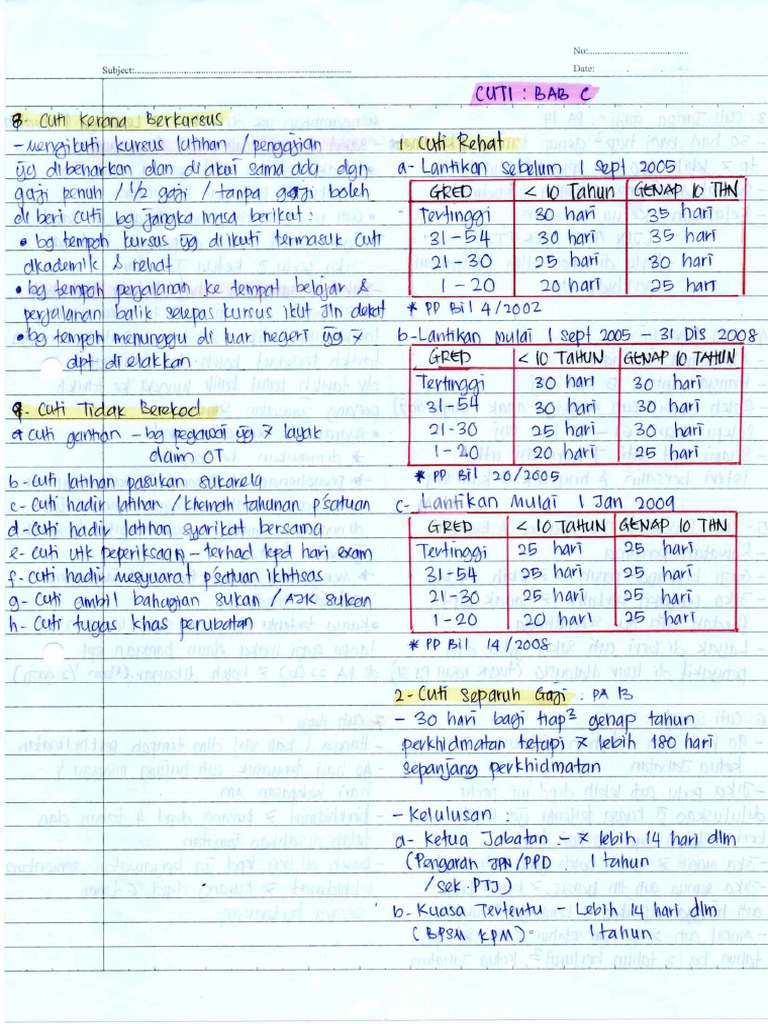 No:
Subject:
Date:
CUTI : BAB C
8- Cuti Kerana Berkursus
- mengikuti kursus latihan / pengajian
yg dibenarkan dan diakui sama ada dgn
gaji penuh / 1/2 gaji / tanpa gaji boleh
diberi cuti bg jangka masa berikut :
• bg tempoh kursus yg diikuti termasuk cuti
akademik & rehat
• bg tempoh perjalanan ke tempat belajar &
perjalanan balik selepas kursus ikut jln dekat
• bg tempoh menunggu di luar negeri yg x
dpt dielakkan
9- Cuti Tidak Berekod
a- cuti gantian - bg pegawai yg x layak
claim OT
b- cuti latihan pasukan sukarela
c- Cuti hadir latihan / khemah tahunan p'satuan
d- Cuti hadir latihan syarikat bersama
e- cuti utk peperiksaan - terhad kpd hari exam
f- Cuti hadir mesyuarat p'satuan ikhtisas
g- Cuti ambil bahagian sukan / AJK sukan
h- Cuti tugas khas perubatan
1 Cuti Rehat
a- Lantikan sebelum 1 Sept 2005
GRED < 10 Tahun GENAP 10 THN
Tertinggi 30 hari 35 hari
31-54 30 hari 35 hari
21-30 25 hari 30 hari
1-20 20 hari 25 hari
* PP Bil 4/2002
b- Lantikan mulai 1 Sept 2005 - 31 Dis 2008
GRED < 10 TAHUN GENAP 10 TAHUN
Tertinggi 30 hari 30 hari
31-54 30 hari 30 hari
21-30 25 hari 30 hari
1-20 20 hari 25 hari
* PP Bil 20/2005
c- Lantikan Mulai 1 Jan 2009
GRED < 10 TAHUN GENAP 10 THN
Tertinggi 25 hari 25 hari
31-54 25 hari 25 hari
21-30 25 hari 25 hari
1-20 20 hari 25 hari
* PP Bil 14/2008
2- Cuti Separuh Gaji : PA 13
- 30 hari bagi tiap² genap tahun
perkhidmatan tetapi x lebih 180 hari
sepanjang perkhidmatan
- Kelulusan :
a- Ketua Jabatan :- x lebih 14 hari dlm
(Pengarah JPN/PPD 1 tahun
/ sek. PTJ)
b- Kuasa Tertentu - Lebih 14 hari dlm
(BPSM KPM) 1 tahun